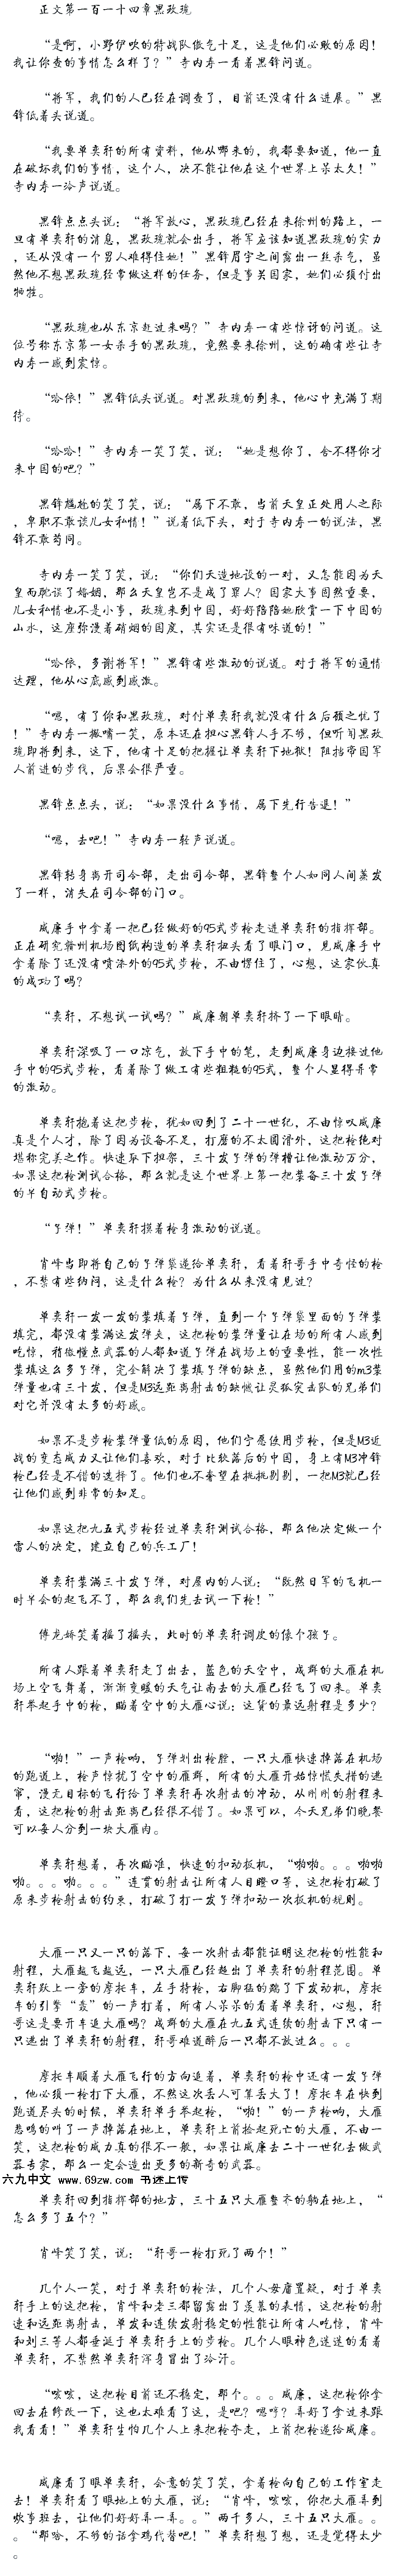 正文第一百一十四章黑玫瑰
“是啊，小野伊吹的特战队傲气十足，这是他们必败的原因！
我让你查的事情怎么样了？”寺内寿一看着黑锋问道。
“将军，我们的人已经在调查了，目前还没有什么进展。”黑
锋低着头说道。
“我要单奕轩的所有资料，他从哪来的，我都要知道，他一直
在破坏我们的事情，这个人，决不能让他在这个世界上呆太久！”
寺内寿一冷声说道。
黑锋点点头说：“将军放心，黑玫瑰已经在来徐州的路上，一
旦有单奕轩的消息，黑玫瑰就会出手，将军应该知道黑玫瑰的实力
，还从没有一个男人难得住她！”黑锋眉宇之间露出一丝杀气，虽
然他不想黑玫瑰经常做这样的任务，但是事关国家，她们必须付出
牺牲。
“黑玫瑰也从东京赶过来吗？”寺内寿一有些惊讶的问道。这
位号称东京第一女杀手的黑玫瑰，竟然要来徐州，这的确有些让寺
内寿一感到震惊。
“哈依！”黑锋低头说道。对黑玫瑰的到来，他心中充满了期
待。
“哈哈！”寺内寿一笑了笑，说：“她是想你了，舍不得你才
来中国的吧？”
黑锋尴尬的笑了笑，说：“属下不敢，当前天皇正处用人之际
，卑职不敢谈儿女私情！”说着低下头，对于寺内寿一的说法，黑
锋不敢苟同。
寺内寿一笑了笑，说：“你们天造地设的一对，又怎能因为天
皇而耽误了婚姻，那么天皇岂不是成了罪人？国家大事固然重要，
儿女私情也不是小事，玫瑰来到中国，好好陪陪她欣赏一下中国的
山水，这座弥漫着硝烟的国度，其实还是很有味道的！”
“哈依，多谢将军！”黑锋有些激动的说道。对于将军的通情
达理，他从心底感到感激。
“嗯，有了你和黑玫瑰，对付单奕轩我就没有什么后顾之忧了
！”寺内寿一撇嘴一笑，原本还在担心黑锋人手不够，但听闻黑玫
瑰即将到来，这下，他有十足的把握让单奕轩下地狱！阻挡帝国军
人前进的步伐，后果会很严重。
黑锋点点头，说：“如果没什么事情，属下先行告退！”
“嗯，去吧！”寺内寿一轻声说道。
黑锋转身离开司令部，走出司令部，黑锋整个人如同人间蒸发
了一样，消失在司令部的门口。
威廉手中拿着一把已经做好的95式步枪走进单奕轩的指挥部。
正在研究滁州机场图纸构造的单奕轩扭头看了眼门口，见威廉手中
拿着除了还没有喷漆外的95式步枪，不由愣住了，心想，这家伙真
的成功了吗？
“奕轩，不想试一试吗？”威廉朝单奕轩挤了一下眼睛。
单奕轩深吸了一口凉气，放下手中的笔，走到威廉身边接过他
手中的95式步枪，看着除了做工有些粗糙的95式，整个人显得异常
的激动。
单奕轩抱着这把步枪，犹如回到了二十一世纪，不由惊叹威廉
真是个人才，除了因为设备不足，打磨的不太圆滑外，这把枪绝对
堪称完美之作。快速取下担架，三十发子弹的弹槽让他激动万分，
如果这把枪测试合格，那么就是这个世界上第一把装备三十发子弹
的半自动式步枪。
“子弹！”单奕轩摸着枪身激动的说道。
肖峰当即将自己的子弹袋递给单奕轩，看着轩哥手中奇怪的枪
，不禁有些纳闷，这是什么枪？为什么从来没有见过？
单奕轩一发一发的装填着子弹，直到一个子弹袋里面的子弹装
填完，都没有装满这发弹夹，这把枪的装弹量让在场的所有人感到
吃惊，稍微懂点武器的人都知道子弹在战场上的重要性，能一次性
装填这么多子弹，完全解决了装填子弹的缺点，虽然他们用的m3装
弹量也有三十发，但是M3远距离射击的缺憾让灵狐突击队的兄弟们
对它并没有太多的好感。
如果不是步枪装弹量低的原因，他们宁愿使用步枪，但是M3近
战的变态威力又让他们喜欢，对于比较落后的中国，身上有M3冲锋
枪已经是不错的选择了。他们也不奢望在挑挑剔剔，一把M3就已经
让他们感到非常的知足。
如果这把九五式步枪经过单奕轩测试合格，那么他决定做一个
雷人的决定，建立自己的兵工厂！
单奕轩装满三十发子弹，对屋内的人说：“既然日军的飞机一
时半会的起飞不了，那么我们先去试一下枪！”
傅龙娇笑着摇了摇头，此时的单奕轩调皮的像个孩子。
所有人跟着单奕轩走了出去，蓝色的天空中，成群的大雁在机
场上空飞舞着，渐渐变暖的天气让南去的大雁已经飞了回来。单奕
轩举起手中的枪，瞄着空中的大雁心说：这货的最远射程是多少？
“啪！”一声枪响，子弹划出枪膛，一只大雁快速掉落在机场
的跑道上，枪声惊扰了空中的雁群，所有的大雁开始惊慌失措的逃
窜，漫无目标的飞行给了单奕轩再次射击的冲动，从刚刚的射程来
看，这把枪的射击距离已经很不错了。如果可以，今天兄弟们晚餐
可以每人分到一块大雁肉。
单奕轩想着，再次瞄准，快速的扣动扳机，“啪啪。。。啪啪
啪。。。啪。。。”连贯的射击让所有人目瞪口呆，这把枪打破了
原来步枪射击的约束，打破了打一发子弹扣动一次扳机的规则。
大雁一只又一只的落下，每一次射击都能证明这把枪的性能和
射程，大雁越飞越远，一只大雁已经超出了单奕轩的射程范围。单
奕轩跃上一旁的摩托车，左手持枪，右脚猛的踹了下发动机，摩托
车的引擎“轰”的一声打着，所有人呆呆的看着单奕轩，心想，轩
哥这是要开车追大雁吗？成群的大雁在九五式连续的射击下只有一
只逃出了单奕轩的射程，轩哥难道醉后一只都不放过么。。。
摩托车顺着大雁飞行的方向追着，单奕轩的枪中还有一发子弹
，他必须一枪打下大雁，不然这次丢人可算丢大了！摩托车在快到
跑道尽头的时候，单奕轩单手举起枪，“啪！”的一声枪响，大雁
悲鸣的叫了一声掉落在地上，单奕轩上前捡起死亡的大雁，不由一
笑，这把枪的威力真的很不一般，如果让威廉去二十一世纪去做武
器专家，那么一定会造出更多的新奇的武器。
六九中文 www.69zw.com 书迷上传
单奕轩回到指挥部的地方，三十五只大雁整齐的躺在地上，“
怎么多了五个？”
肖峰笑了笑，说：“轩哥一枪打死了两个！”
几个人一笑，对于单奕轩的枪法，几个人毋庸置疑，对于单奕
轩手上的这把枪，肖峰和老三都留露出了羡慕的表情，这把枪的射
速和远距离射击，单发和连续发射稳定的性能让所有人吃惊，肖峰
和刘三等人都垂涎于单奕轩手上的步枪。几个人眼神色迷迷的看着
单奕轩，不禁然单奕轩浑身冒出了冷汗。
“咳咳，这把枪目前还不稳定，那个。。。威廉，这把枪你拿
回去在修改一下，这也太难看了这，是吧？嗯哼？弄好了拿过来跟
我看看！”单奕轩生怕几个人上来把枪夺走，上前把枪递给威廉。
威廉看了眼单奕轩，会意的笑了笑，拿着枪向自己的工作室走
去！单奕轩看了眼地上的大雁，说：“肖峰，咳咳，你把大雁弄到
炊事班去，让他们好好弄一弄。。”两千多人，三十五只大雁。。
。“那啥，不够的话拿鸡代替吧！”单奕轩想了想，还是觉得太少
。